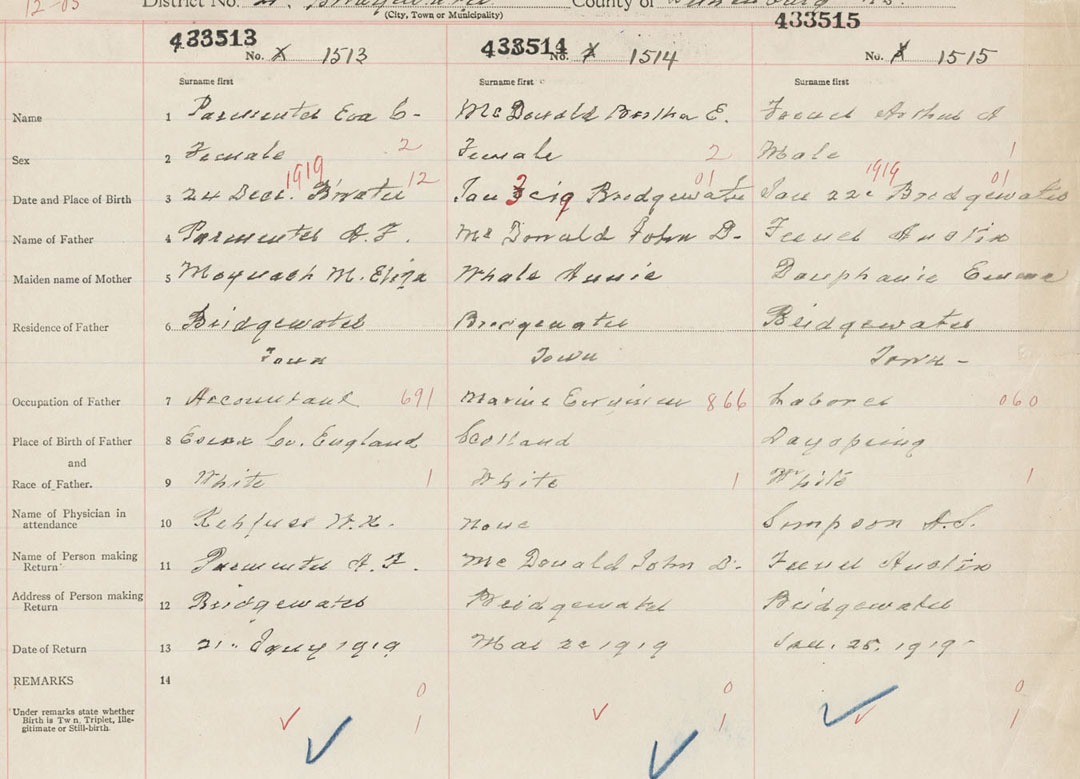 12-03 District No. 21. Bridgewater County of Lunenburg
(City, Town or Municipality)
433513 433514 433515
No. X 1513 No. X 1514 No. X 1515
Surname first Surname first Surname first
Name 1 Parmenter Eva C- McDonald Bertha E. Arthur A
Sex 2 Female 2 Female 2 Male 1
1919 1919
Date and Place of Birth 3 24 Dec. B'water 12 Jan Bridgewater 01 Jan 22 Bridgewater 01
Name of Father 4 Parmenter A. F. McDonald John D. Austin
Maiden name of Mother 5 M. Eliza Whale Annie Dauphanie Emma
Residence of Father 6 Bridgewater Bridgewater Bridgewater
Town Town Town -
Occupation of Father 7 Accountant 691 Marine Engineer 866 Laborer 060
Place of Birth of Father 8 Essex Co. England Scotland Dayspring
and
Race of Father. 9 White 1 White 1 White 1
Name of Physician in attendance 10 Rehfuss W. N. None Simpson A.S.
Name of Person making Return 11 Parmenter A. F. McDonald John D. Austin
Address of Person making Return 12 Bridgewater Bridgewater Bridgewater
Date of Return 13 21. Jany 1919 Mar 22 1919 Jan. 25. 1919
REMARKS 14
0 0 0
Under remarks state whether
Birth is Twin, Triplet, Ille-
gitimate or Still-birth. 1 1 1